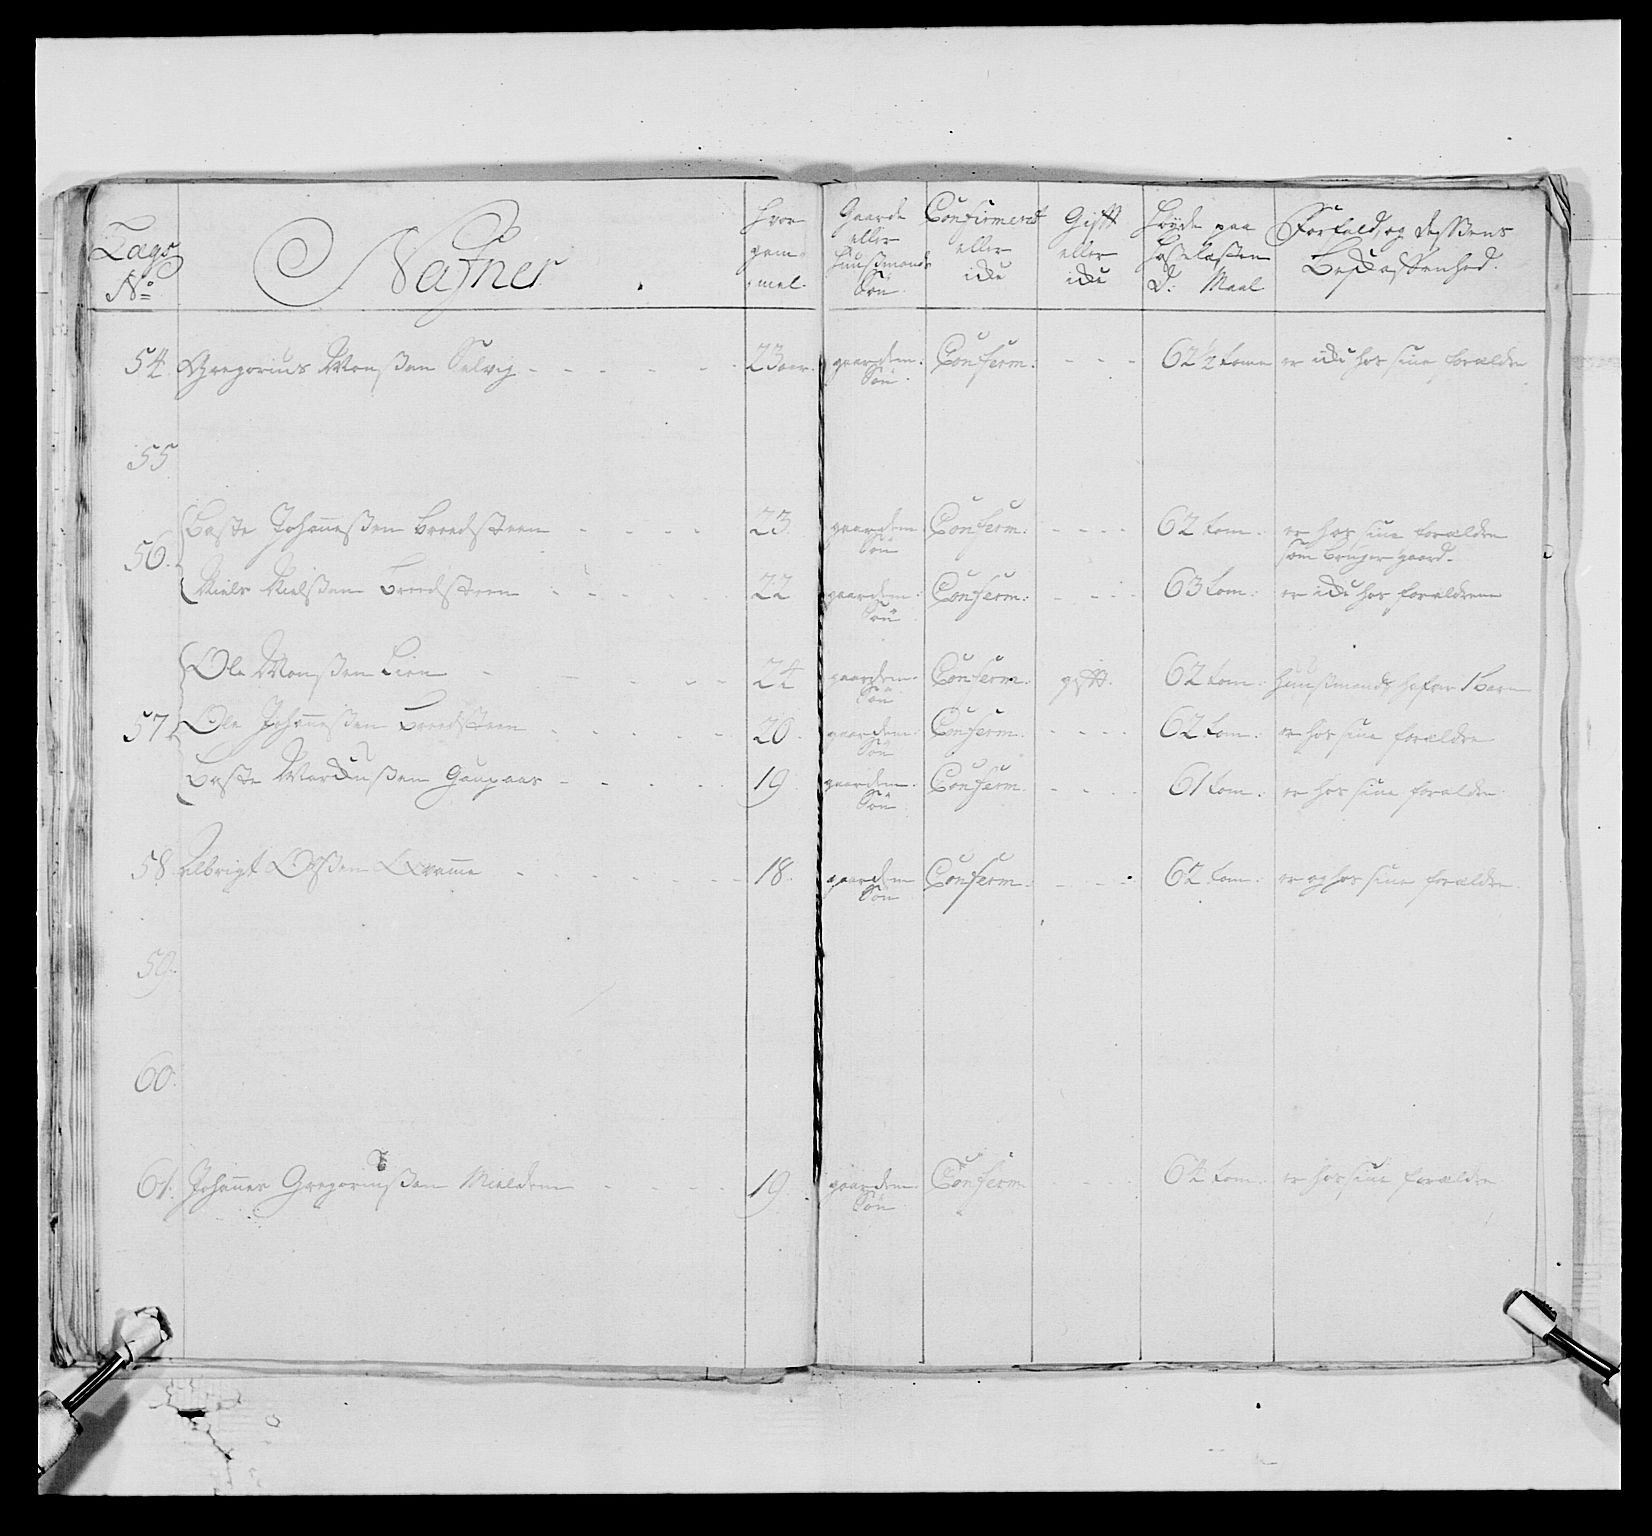 Lægs No
Nafner
hvor gam= mel.
Gaarde eller Huusmands Søn
Confirmeret eller icke
Gift eller icke
Høyde paa Hoselæsten D: Maal
Forfald og dessens Beskaffenhed.
54. Gregorius Monsßen Selvig - - - 23 aar. gaardm: Søn Conferm. - - - 62½ tomme er icke hos sine forældre
55
56. Baste Johanneßen Breedsteen - - - 23. gaardm Søn Conferm. - - - 62 tom: er hos sine forældre
som bruger gaard.
Niels Nielßen Breedsteen - - - 22 gaardm: Søn Conferm: - - - 63 tom: er icke hos forældrene
57. Ole Monßen Lien - - - 24 gaardm. Søn Conferm. gift. 62 tom: Huusmand, hafver 1 barn
Ole Johanneßen Breedsteen - - - 20. gaardm: Søn Conferm. - - - 62 tom. er hos sine forældre
Baste Marcusßen Gaupaas - - - 19. gaardm. Søn Conferm. - - - 61 tom: er hos sine forældre.
58. Albrigt Olßen Qvamme - - - 18. gaardm Søn Conferm. - - - 62 tom. er og hos sine forældre.
59.
60.
61. Johannes Gregoriusßen Mieldem - - - 19. gaardm. Søn Conferm - - - 64 tom. er hos sine forældre